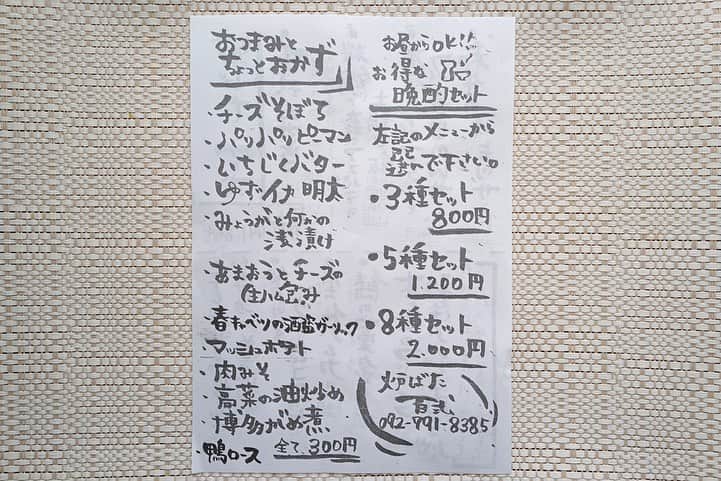 おつまみと
ちょっとおかず
・チーズそぼろ
・パリパリピーマン
・いちじくバター
・ゆずイカ明太
・みょうがと何かの
浅漬け
・あまおうとチーズの
生ハム包み
・春キャベツの酒盗ガーリック
・マッシュポテト
・肉みそ
・高菜の油炒め
・博多がめ煮
・鴨ロース 全て300円
お昼からOK!!
お得な
晩酌セット
左記のメニューから
お選び下さい。
・3種セット
800円
・5種セット
1.200円
・8種セット
2.000円
炉ばた
百式
092-791-8385